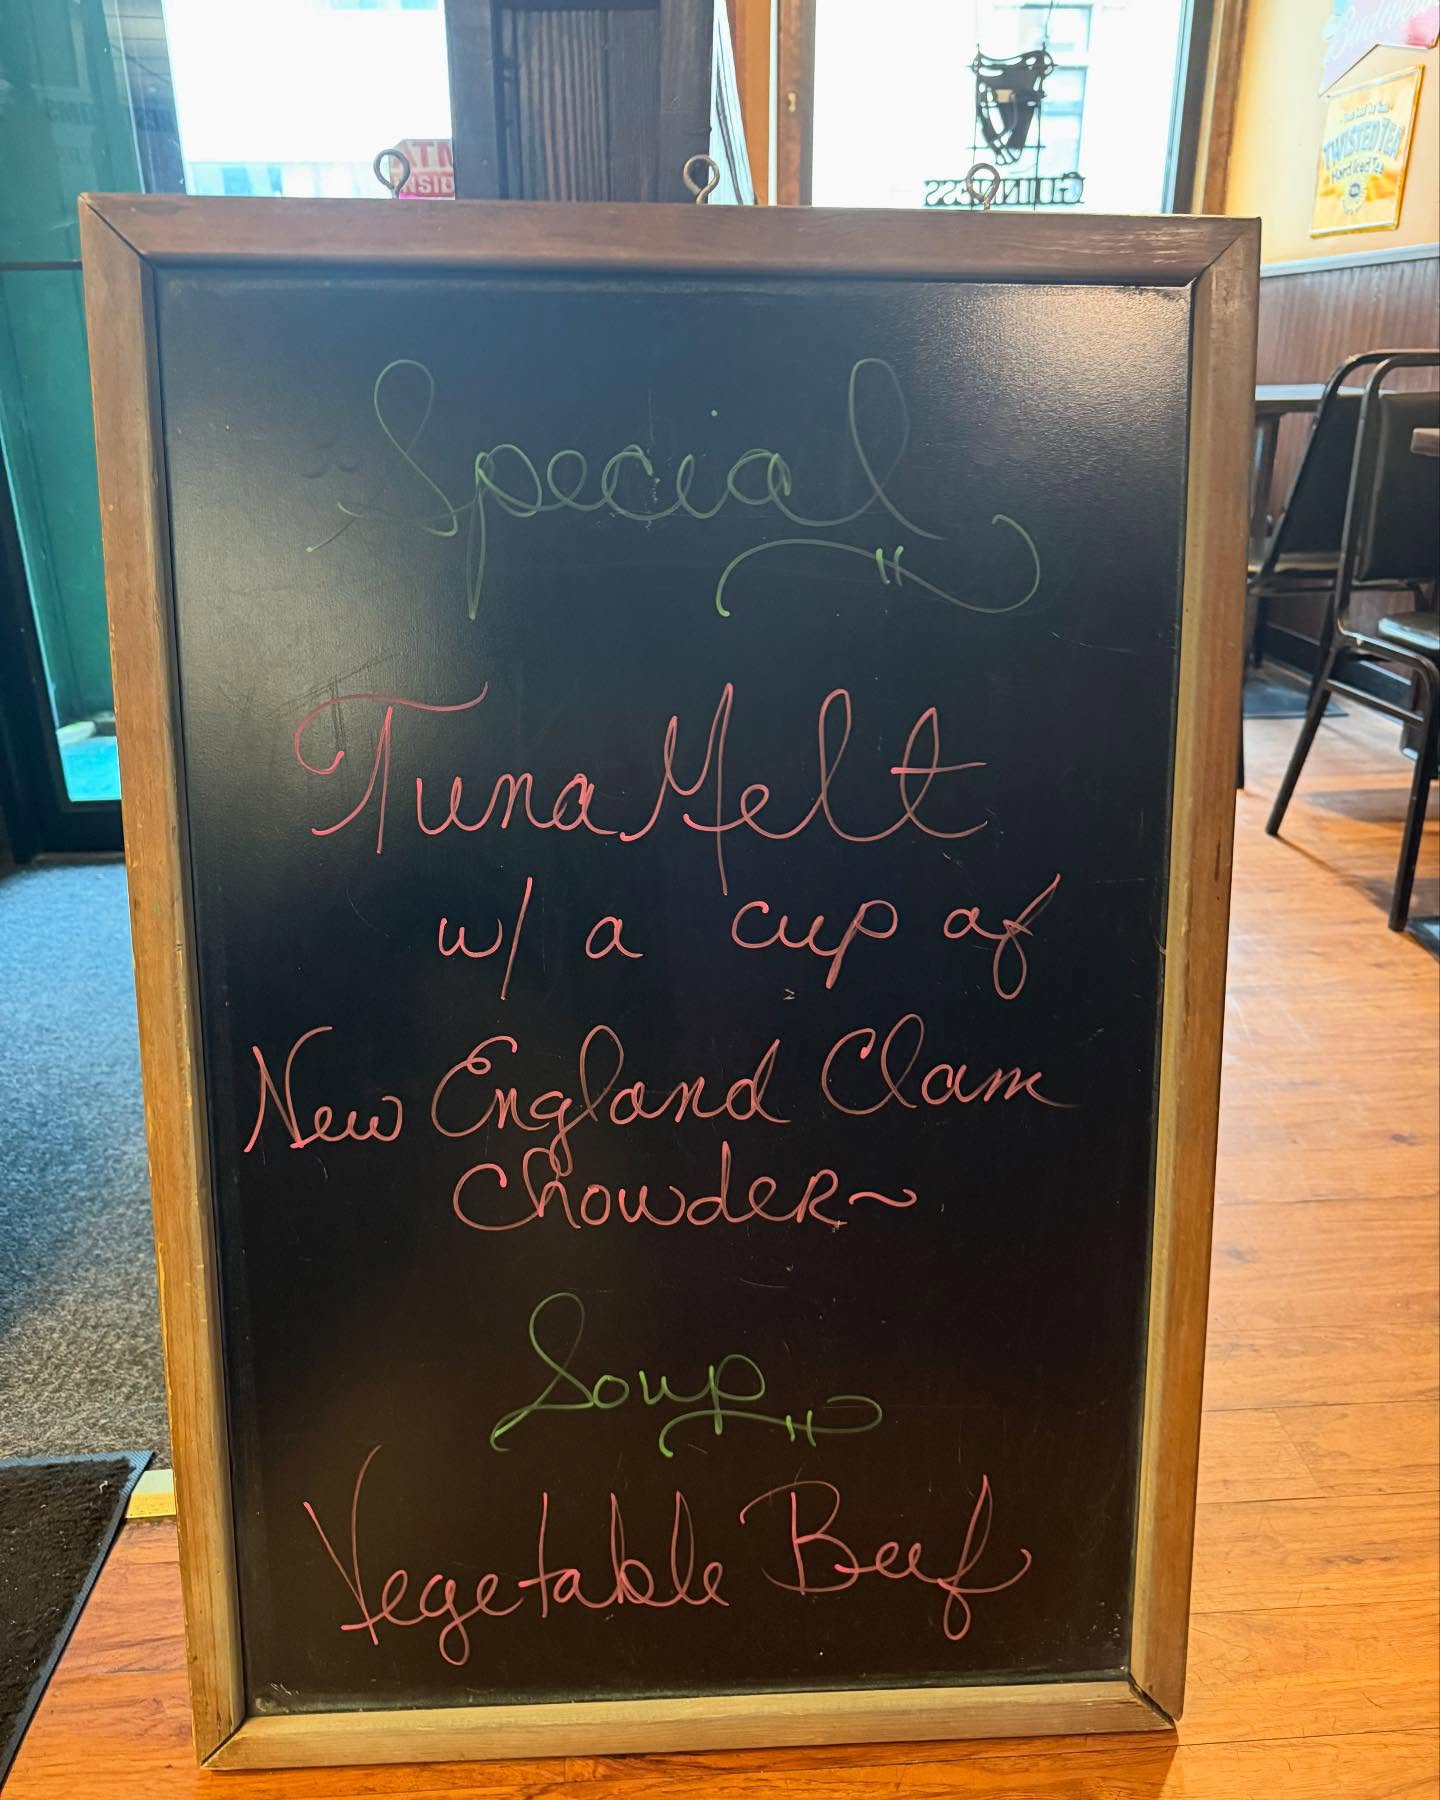 ATM
INSIDE
GUINNESS
TWISTED TEA
Hard Iced Tea
Special
Tuna Melt
w/ a cup of
New England Clam
Chowder~
Soup
Vegetable Beef